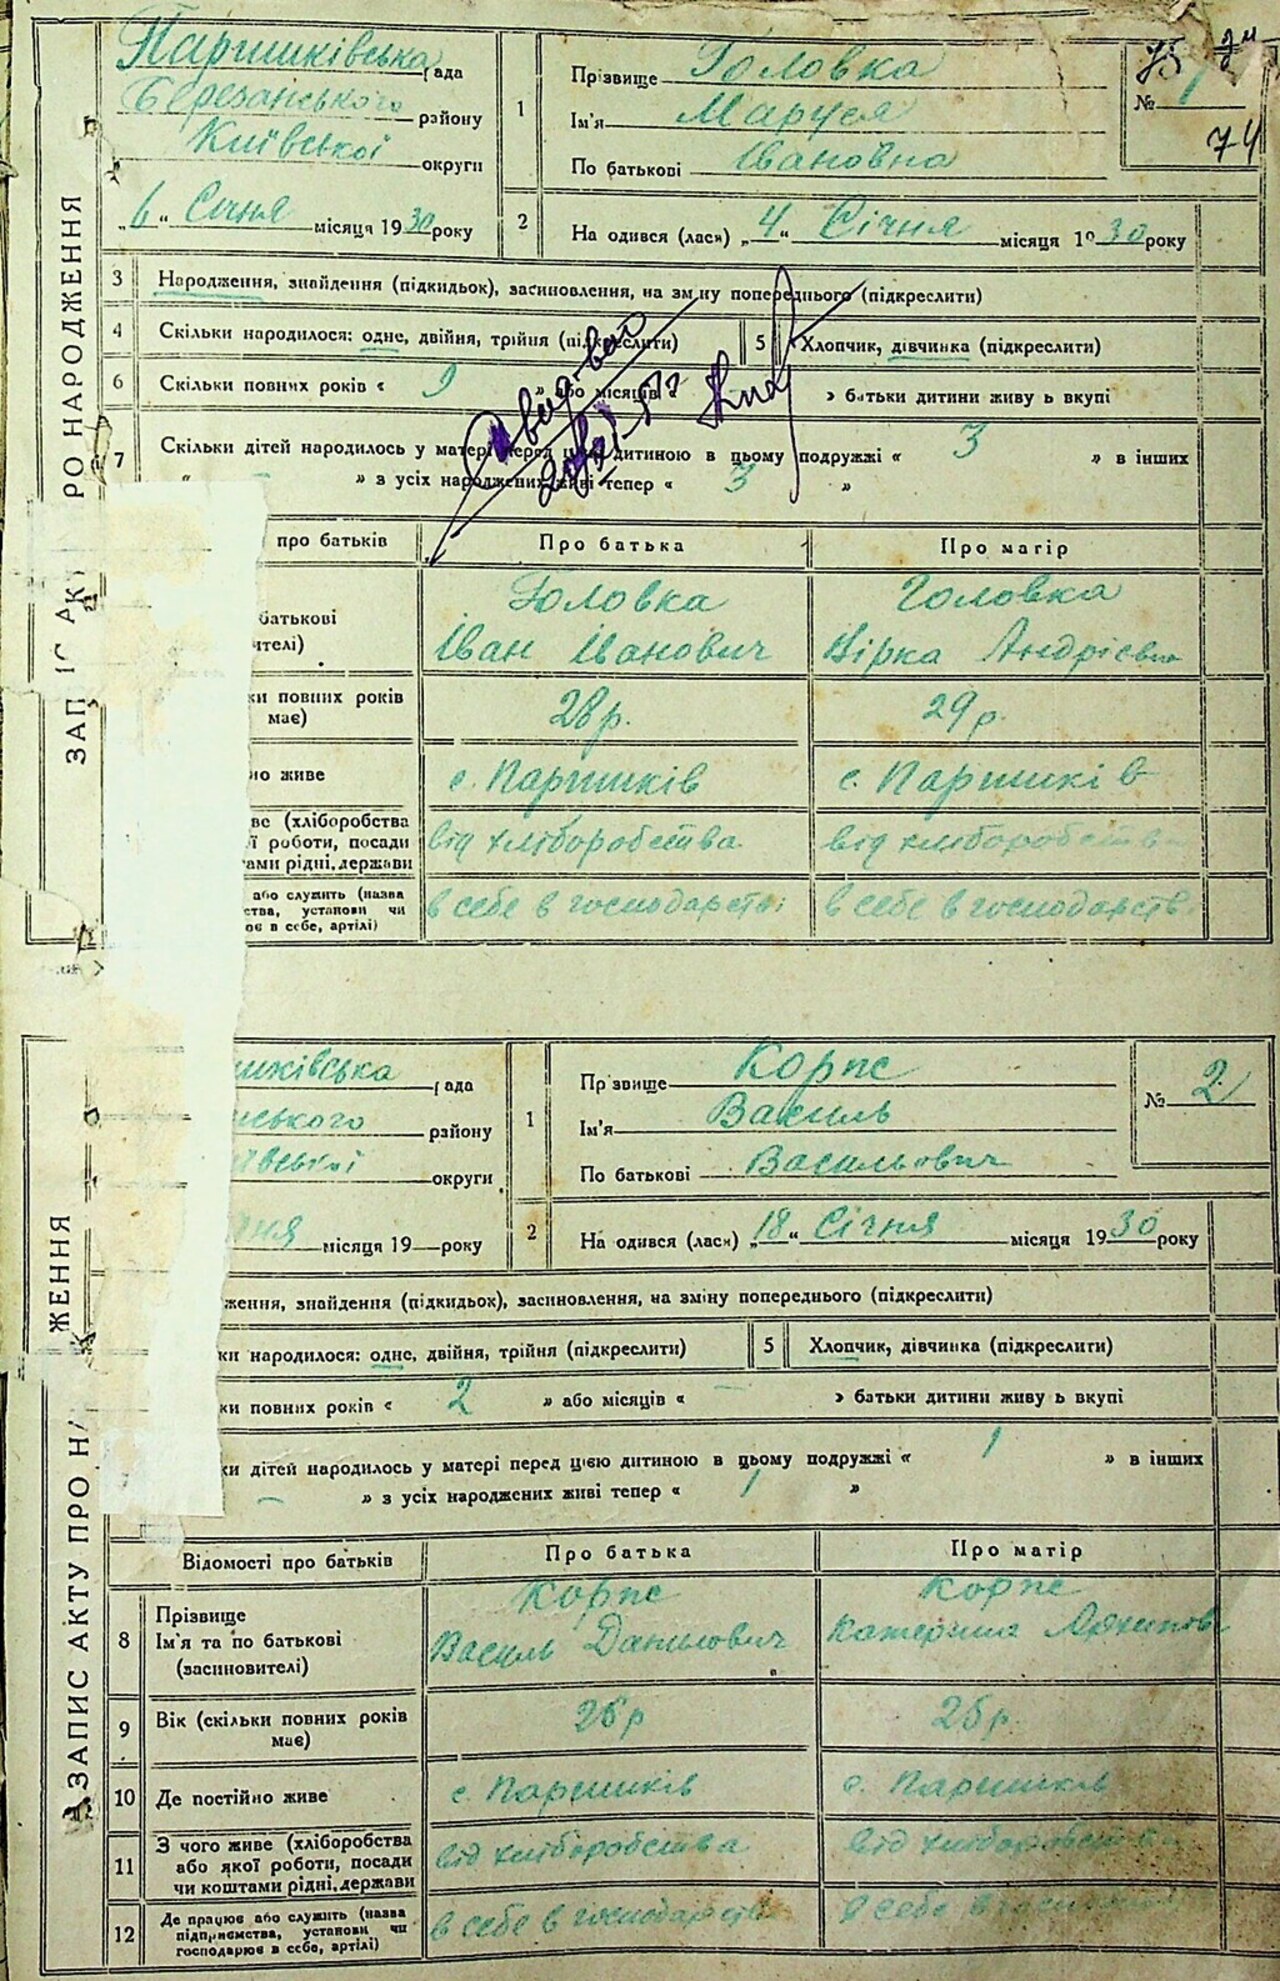 Паришківська рада
Березанського району
Київської округи
„6“ Січня місяця 1930 року
1
Прізвище Головка
Ім'я Маруся
По батькові Івановна
75
74
№ 1
74
2
На одився (лась) „4“ Січня місяця 1930 року
ЗАПИС АК РО НАРОДЖЕННЯ
3 Народження, знайдення (підкидьок), засиновлення, на зміну попереднього (підкреслити)
4 Скільки народилося: одне, двійня, трійня (підкреслити)
5 Хлопчик, дівчинка (підкреслити)
6 Скільки повних років « 9 » або місяців « » батьки дитини живуть вкупі
7 Скільки дітей народилось у матері перед цією дитиною в цьому подружжі « 3 » в інших
« – » з усіх народжених живі тепер « 3 »
про батьків Про батька Про матір
батькові
ителі)
Головка
Іван Іванович
Головка
Вірка Андрієвна
ки повних років
має)
28 р.
29 р.
но живе
с. Паришків
с. Паришків
ве (хліборобства
ї роботи, посади
ами рідні, держави
від хліборобства
від хліборобства
або служить (назва
ства, установи чи
ює в себе, артілі)
в себе в господарстві
в себе в господарств
ишківська рада
нського району
ївської округи
чня місяця 19 — року
1
Прізвище Корпе
Ім'я Василь
По батькові Васильович
№ 2
2
На одився (лась) „18“ Січня місяця 1930 року
ЗАПИС АКТУ ПРО НА ЖЕННЯ
ження, знайдення (підкидьок), засиновлення, на зміну попереднього (підкреслити)
ки народилося: одне, двійня, трійня (підкреслити)
5 Хлопчик, дівчинка (підкреслити)
ки повних років « 2 » або місяців « – » батьки дитини живуть вкупі
ки дітей народилось у матері перед цією дитиною в цьому подружжі « 1 » в інших
– » з усіх народжених живі тепер « 1 »
Відомості про батьків Про батька Про матір
8
Прізвище
Ім'я та по батькові
(засиновителі)
Корпе
Василь Данилович
Корпе
Катерина Архипов
9
Вік (скільки повних років
має)
26 р
25 р.
10 Де постійно живе
с. Паришків
с. Паришків
11
З чого живе (хліборобства
або якої роботи, посади
чи коштами рідні, держави
від хліборобства
від хліборобства
12
Де працює або служить (назва
підприємства, установи чи
господарює в себе, артілі)
в себе в господарств
в себе в господарст